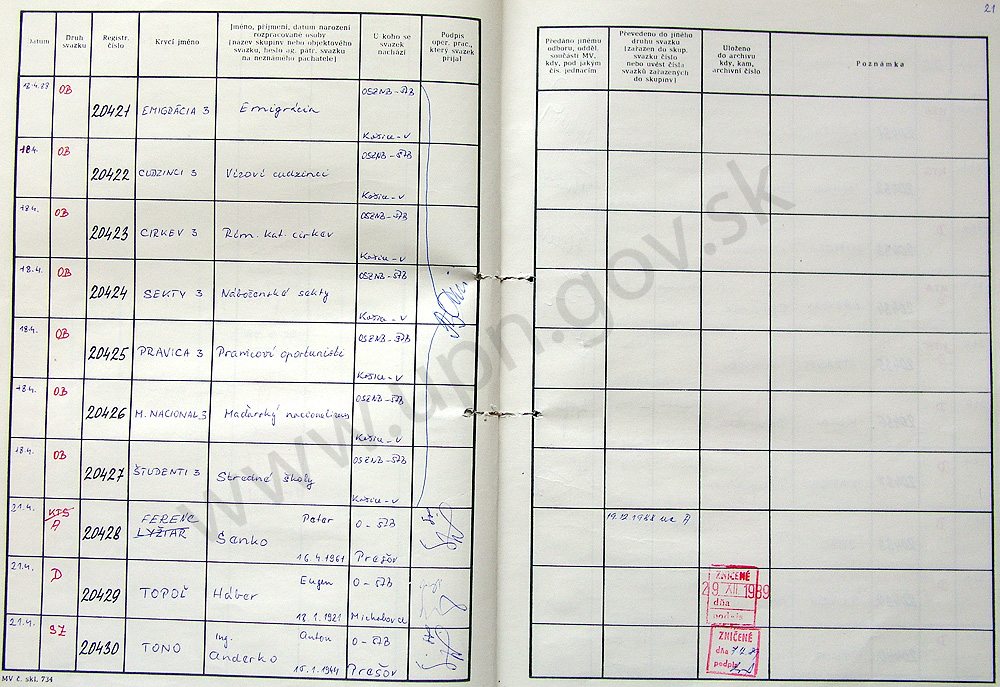 21
Datum
Druh svazku
Registr. číslo
Krycí jméno
Jméno, příjmení, datum narození rozpracované osoby
[název skupiny nebo objektového svazku, heslo ag. pátr. svazku na neznámého pachatele]
U koho se svazek nachází
Podpis oper. prac., který svazek přijal
Předáno jinému odboru, odděl. součásti MV, kdy, pod jakým čís. jednacím
Převedeno do jiného druhu svazku [zařazen do skup. svazku číslo nebo uvést čísla svazků zařazených do skupiny]
Uloženo do archivu kdy, kam, archivní číslo
Poznámka
18.4.88 OB 20421 EMIGRÁCIA 3 Emigrácia OSZNB-ŠTB Košice-V
18.4. OB 20422 CUDZINCI 3 Vízoví cudzinci OSZNB-ŠTB Košice-V
18.4. OB 20423 CIRKEV 3 Rím. kat. cirkev OSZNB-ŠTB Košice-V
18.4. OB 20424 SEKTY 3 Náboženské sekty OSZNB-ŠTB Košice-V
18.4. OB 20425 PRAVICA 3 Pravicoví oportunisti OSZNB-ŠTB Košice-V
18.4. OB 20426 M. NACIONAL. 3 Maďarský nacionalizmus OSZNB-ŠTB Košice-V
18.4. OB 20427 ŠTUDENTI 3 Stredné školy OSZNB-ŠTB Košice-V
21.4. KTS A 20428 FERENC LYŽIAR Peter Sanko 16.4.1961 O-ŠTB Prešov 19.12.1988 na A
21.4. D 20429 TOPOĽ Eugen Háber 18.1.1921 O-ŠTB Michalovce ZNIČENÉ 29. XII. 1989 dňa podpis
21.4. SZ 20430 TONO Ing. Anton Anderko 15.1.1944 O-ŠTB Prešov ZNIČENÉ dňa podpis
MV č. skl. 734
www.upn.gov.sk